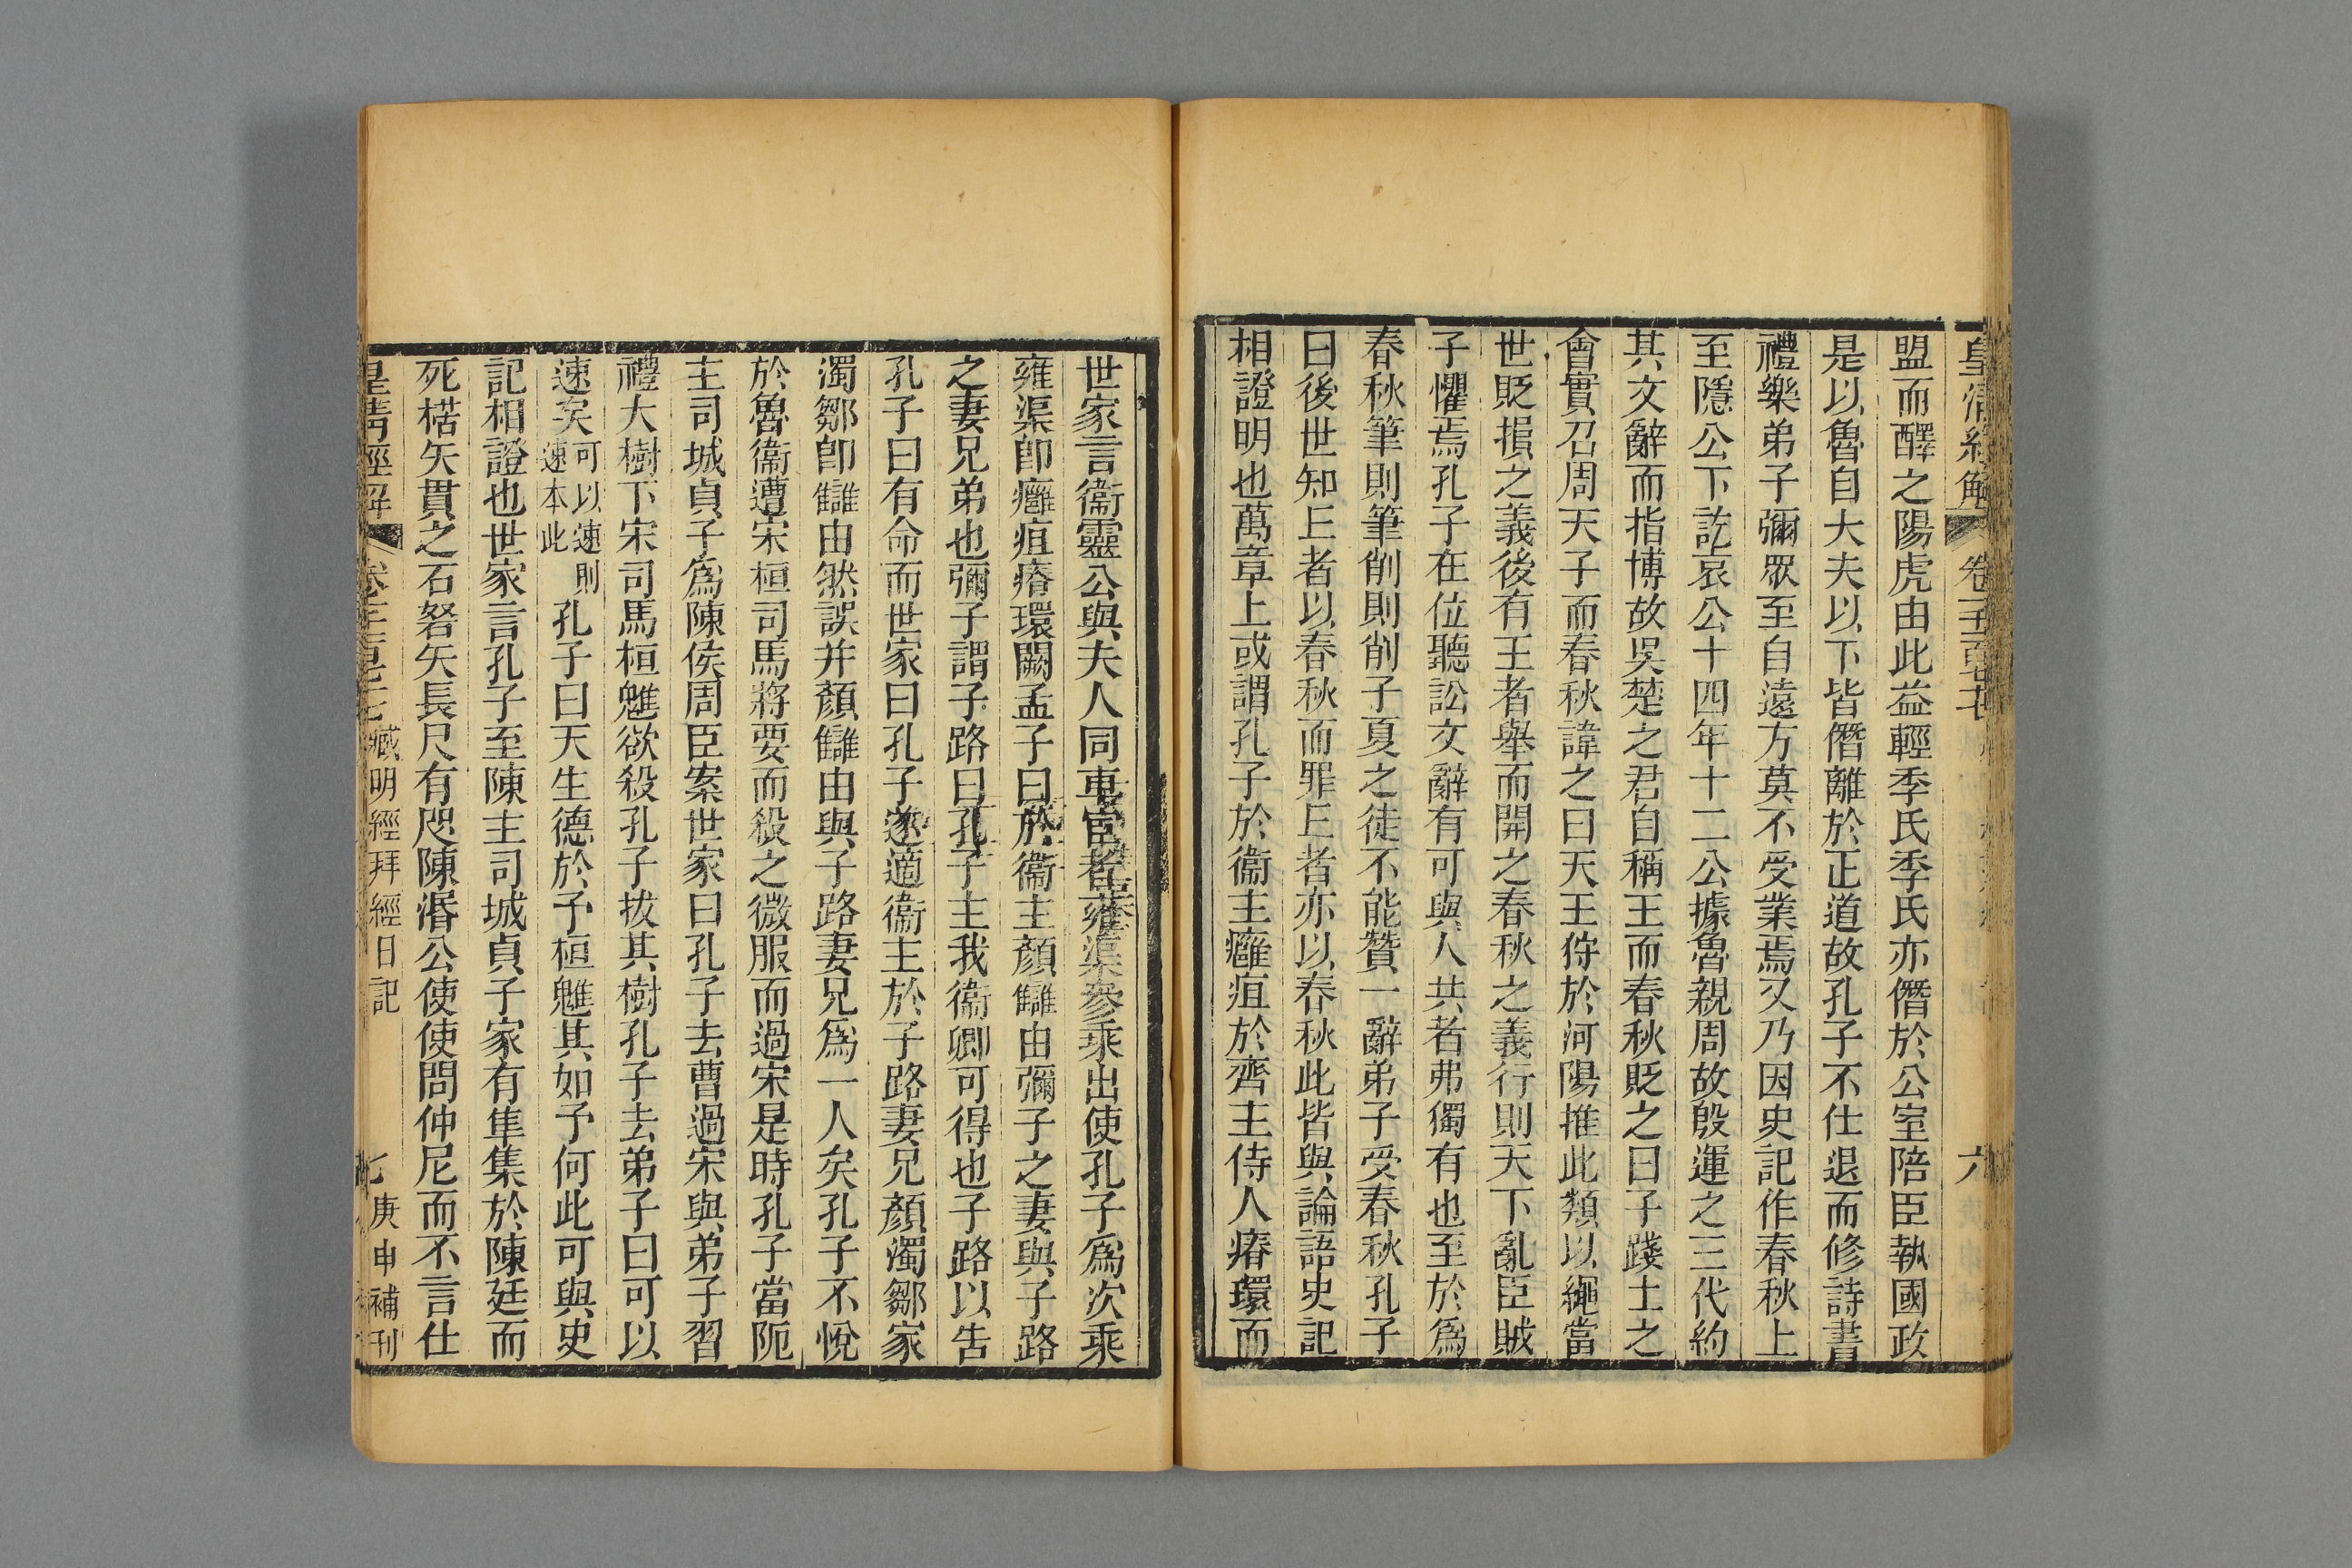 皇清經解 卷 六
盟而醳之陽虎由此益輕季氏季氏亦僭於公室陪臣執國政
是以魯自大夫以下皆僭離於正道故孔子不仕退而修詩書
禮樂弟子彌眾至自遠方莫不受業焉又乃因史記作春秋上
至隱公下訖哀公十四年十二公據魯親周故殷運之三代約
其文辭而指博故吳楚之君自稱王而春秋貶之曰子踐土之
會實召周天子而春秋諱之曰天王狩於河陽推此類以繩當
世貶損之義後有王者舉而開之春秋之義行則天下亂臣賊
子懼焉孔子在位聽訟文辭有可與人共者弗獨有也至於爲
春秋筆則筆削則削子夏之徒不能贊一辭弟子受春秋孔子
曰後世知丘者以春秋而罪丘者亦以春秋此皆與論語史記
相證明也萬章上或謂孔子於衞主癰疽於齊主侍人瘠環而
世家言衞靈公與夫人同車宦者雍渠參乘出使孔子爲次乘
雍渠卽癰疽瘠環闕孟子曰於衞主顏讎由彌子之妻與子路
之妻兄弟也彌子謂子路曰孔子主我衞卿可得也子路以告
孔子曰有命而世家曰孔子遂適衞主於子路妻兄顏濁鄒家
濁鄒卽讎由然誤并顏讎由與子路妻兄爲一人矣孔子不悅
於魯衞遭宋桓司馬將要而殺之微服而過宋是時孔子當阨
主司城貞子爲陳侯周臣案世家曰孔子去曹過宋與弟子習
禮大樹下宋司馬桓魋欲殺孔子拔其樹孔子去弟子曰可以
速矣可以速則速本此孔子曰天生德於予桓魋其如予何此可與史
記相證也世家言孔子至陳主司城貞子家有隼集於陳廷而
死楛矢貫之石砮矢長尺有咫陳湣公使使問仲尼而不言仕
皇清經解 臧明經拜經日記 七 庚申補刊